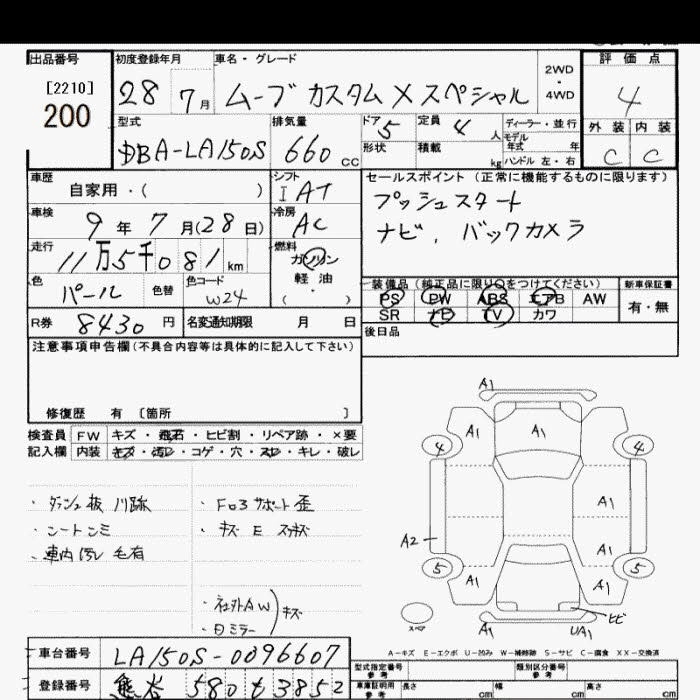 出品番号
[2210]
200
初度登録年月
28 7月
車名・グレード
ムーブ カスタム X スペシャル
2WD
・
4WD
評価点
4
外装 内装
C C
型式
DBA-LA150S
排気量
660 cc
ドア 5
定員 4 人
形状
積載 kg
ディーラー・並行
モデル
年式 年
ハンドル 左・右
車歴
自家用・( )
シフト
I AT
セールスポイント(正常に機能するものに限ります)
プッシュスタート
ナビ、バックカメラ
車検
9年7月(28日)
冷房
AC
走行
11万5千081km
燃料
ガソリン
軽油
( ・ )
色
パール
色替
色コード
W24
装備品(純正品に限り○をつけてください)
PS PW ABS エアB AW
SR ナビ TV カワ
新車保証書
有・無
R券 8430円
名変通知期限 月 日
後日品
注意事項申告欄(不具合内容等は具体的に記入して下さい)
修復歴 有〔箇所 〕
検査員 FW キズ・飛石・ヒビ割・リペア跡・×要
記入欄 内装 キズ・汚レ・コゲ・穴・スレ・キレ・破レ
・シートシミ
・車内汚レ 毛有
・Fロアサポート歪
・キズ E スリキズ
・社外AW
・Dミラー
キズ
A1
A1
A1
4
4
A1
A1
A2
A1
5
5
A1
A1
ヒビ
スペア
A1
UA1
A-キズ E-エクボ U-凹み W-補修跡 S-サビ C-腐食 XX-交換済
車台番号 LA150S-0096607
登録番号 熊谷 580 も 3852
型式指定番号
参考
類別区分番号
参考
車庫証明用
参考
長さ cm
幅 cm
高さ cm